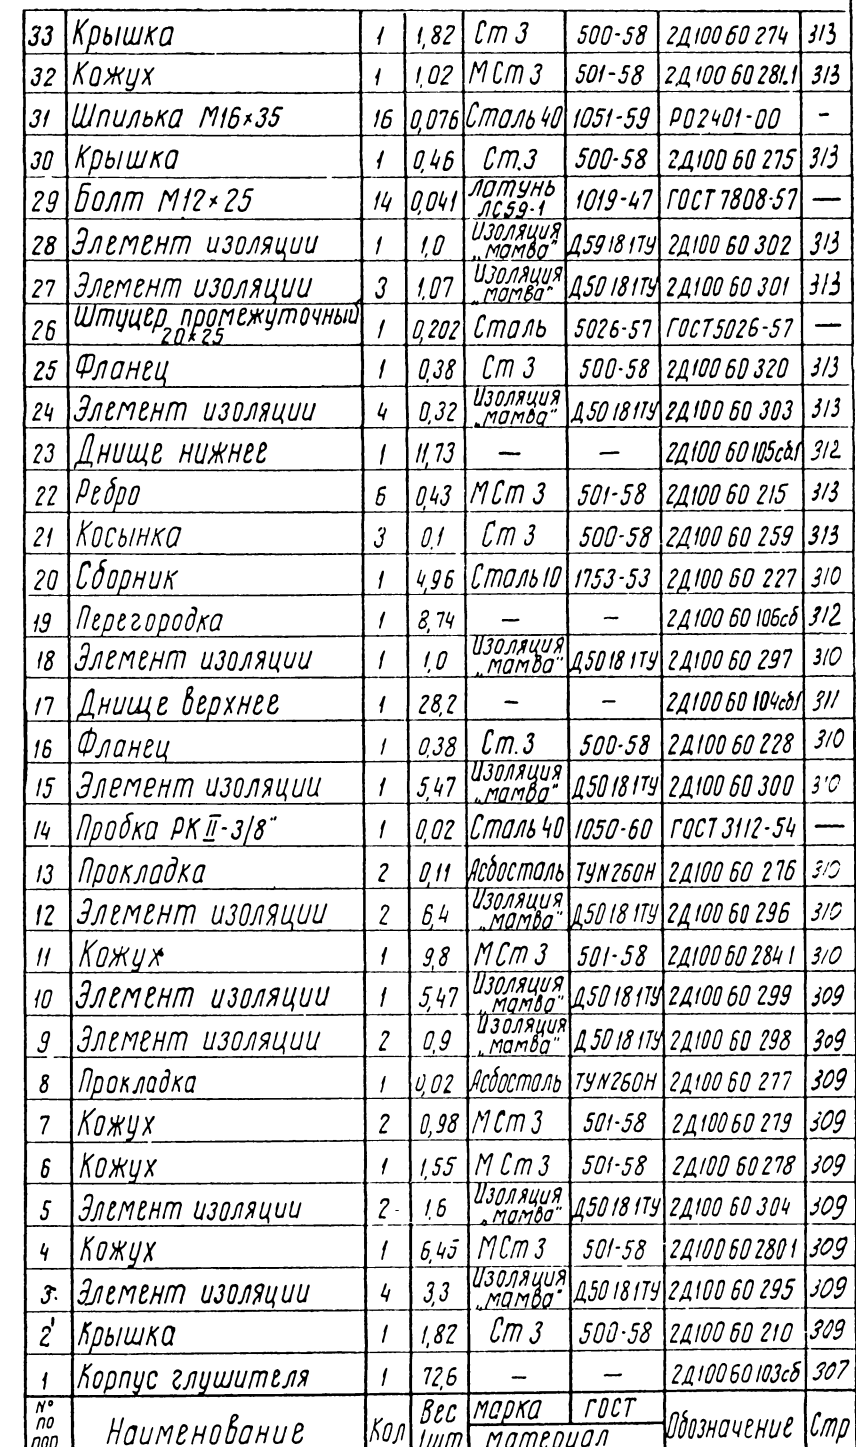 33 Крышка 1 1,82 Ст 3 500-58 2Д100 60 274 313
32 Кожух 1 1,02 МСт 3 501-58 2Д100 60 281.1 313
31 Шпилька М16×35 16 0,076 Сталь 40 1051-59 Р02401-00 –
30 Крышка 1 0,46 Ст.3 500-58 2Д100 60 275 313
29 Болт М12×25 14 0,041 латунь ЛС59-1 1019-47 ГОСТ 7808-57 —
28 Элемент изоляции 1 1,0 Изоляция „мамва" Д59181ТУ 2Д100 60 302 313
27 Элемент изоляции 3 1,07 Изоляция „мамва" Д50181ТУ 2Д100 60 301 313
26 Штуцер промежуточный 20×25 1 0,202 Сталь 5026-57 ГОСТ5026-57 —
25 Фланец 1 0,38 Ст 3 500-58 2Д100 60 320 313
24 Элемент изоляции 4 0,32 Изоляция „мамва" Д50181ТУ 2Д100 60 303 313
23 Днище нижнее 1 11,73 — — 2Д100 60 105сб1 312
22 Ребро 6 0,43 МСт 3 501-58 2Д100 60 215 313
21 Косынка 3 0,1 Ст 3 500-58 2Д100 60 259 313
20 Сборник 1 4,96 Сталь 10 1753-53 2Д100 60 227 310
19 Перегородка 1 8,74 — — 2Д100 60 106сб 312
18 Элемент изоляции 1 1,0 Изоляция „мамва" Д50181ТУ 2Д100 60 297 310
17 Днище верхнее 1 28,2 — — 2Д100 60 104сб1 311
16 Фланец 1 0,38 Ст.3 500-58 2Д100 60 228 310
15 Элемент изоляции 1 5,47 Изоляция „мамва" Д50181ТУ 2Д100 60 300 310
14 Пробка РК II-3/8" 1 0,02 Сталь 40 1050-60 ГОСТ 3112-54 —
13 Прокладка 2 0,11 Асбосталь ТУN260Н 2Д100 60 276 310
12 Элемент изоляции 2 6,4 Изоляция „мамва" Д50181ТУ 2Д100 60 296 310
11 Кожух 1 9,8 МСт 3 501-58 2Д100 60 284 1 310
10 Элемент изоляции 1 5,47 Изоляция „мамва" Д50181ТУ 2Д100 60 299 309
9 Элемент изоляции 2 0,9 Изоляция „мамва" Д50181ТУ 2Д100 60 298 309
8 Прокладка 1 0,02 Асбосталь ТУN260Н 2Д100 60 277 309
7 Кожух 2 0,98 МСт 3 501-58 2Д100 60 279 309
6 Кожух 1 1,55 МСт 3 501-58 2Д100 60 278 309
5 Элемент изоляции 2 1,6 Изоляция „мамва" Д50181ТУ 2Д100 60 304 309
4 Кожух 1 6,45 МСт 3 501-58 2Д100 60 280 1 309
3 Элемент изоляции 4 3,3 Изоляция „мамва" Д50181ТУ 2Д100 60 295 309
2 Крышка 1 1,82 Ст 3 500-58 2Д100 60 210 309
1 Корпус глушителя 1 72,6 — — 2Д100 60 103сб 307
№ по пор Наименование Кол Вес 1шт марка ГОСТ материал Обозначение Стр